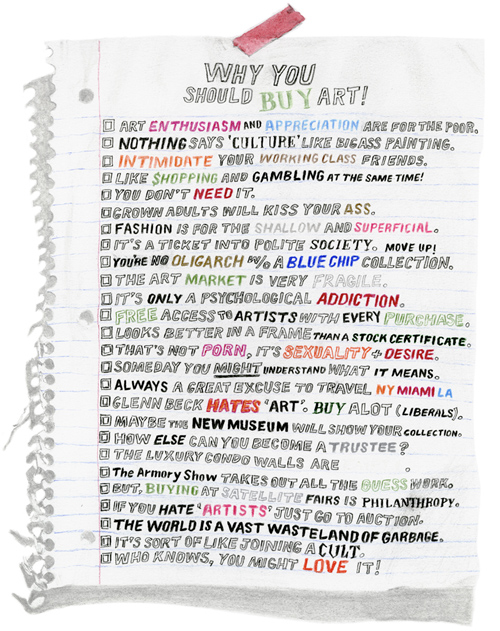 WHY YOU
SHOULD BUY ART!
ART ENTHUSIASM AND APPRECIATION ARE FOR THE POOR.
NOTHING SAYS 'CULTURE' LIKE BIGASS PAINTING.
INTIMIDATE YOUR WORKING CLASS FRIENDS.
LIKE $HOPPING AND GAMBLING AT THE SAME TIME!
YOU DON'T NEED IT.
GROWN ADULTS WILL KISS YOUR ASS.
FASHION IS FOR THE SHALLOW AND SUPERFICIAL.
IT'S A TICKET INTO POLITE SOCIETY. MOVE UP!
YOU'RE NO OLIGARCH W/O A BLUE CHIP COLLECTION.
THE ART MARKET IS VERY FRAGILE.
IT'S ONLY A PSYCHOLOGICAL ADDICTION.
FREE ACCESS TO ARTISTS WITH EVERY PURCHASE.
LOOKS BETTER IN A FRAME THAN A STOCK CERTIFICATE.
THAT'S NOT PORN, IT'S SEXUALITY + DESIRE.
SOMEDAY YOU MIGHT UNDERSTAND WHAT IT MEANS.
ALWAYS A GREAT EXCUSE TO TRAVEL NY MIAMI LA
GLENN BECK HATES 'ART'. BUY ALOT (LIBERALS).
MAYBE THE NEW MUSEUM WILL SHOW YOUR COLLECTION.
HOW ELSE CAN YOU BECOME A TRUSTEE?
THE LUXURY CONDO WALLS ARE
The Armory Show TAKES OUT ALL THE GUESS WORK.
BUT, BUYING AT SATELLITE FAIRS IS PHILANTHROPY.
IF YOU HATE 'ARTISTS' JUST GO TO AUCTION.
THE WORLD IS A VAST WASTELAND OF GARBAGE.
IT'S SORT OF LIKE JOINING A CULT.
WHO KNOWS, YOU MIGHT LOVE IT!